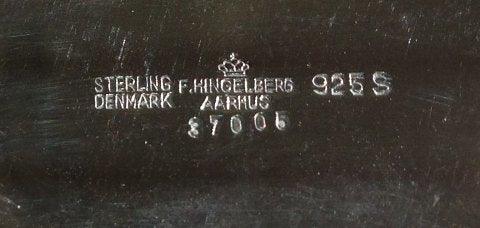 STERLING F. HINGELBERG 925 S
DENMARK AARHUS
37005